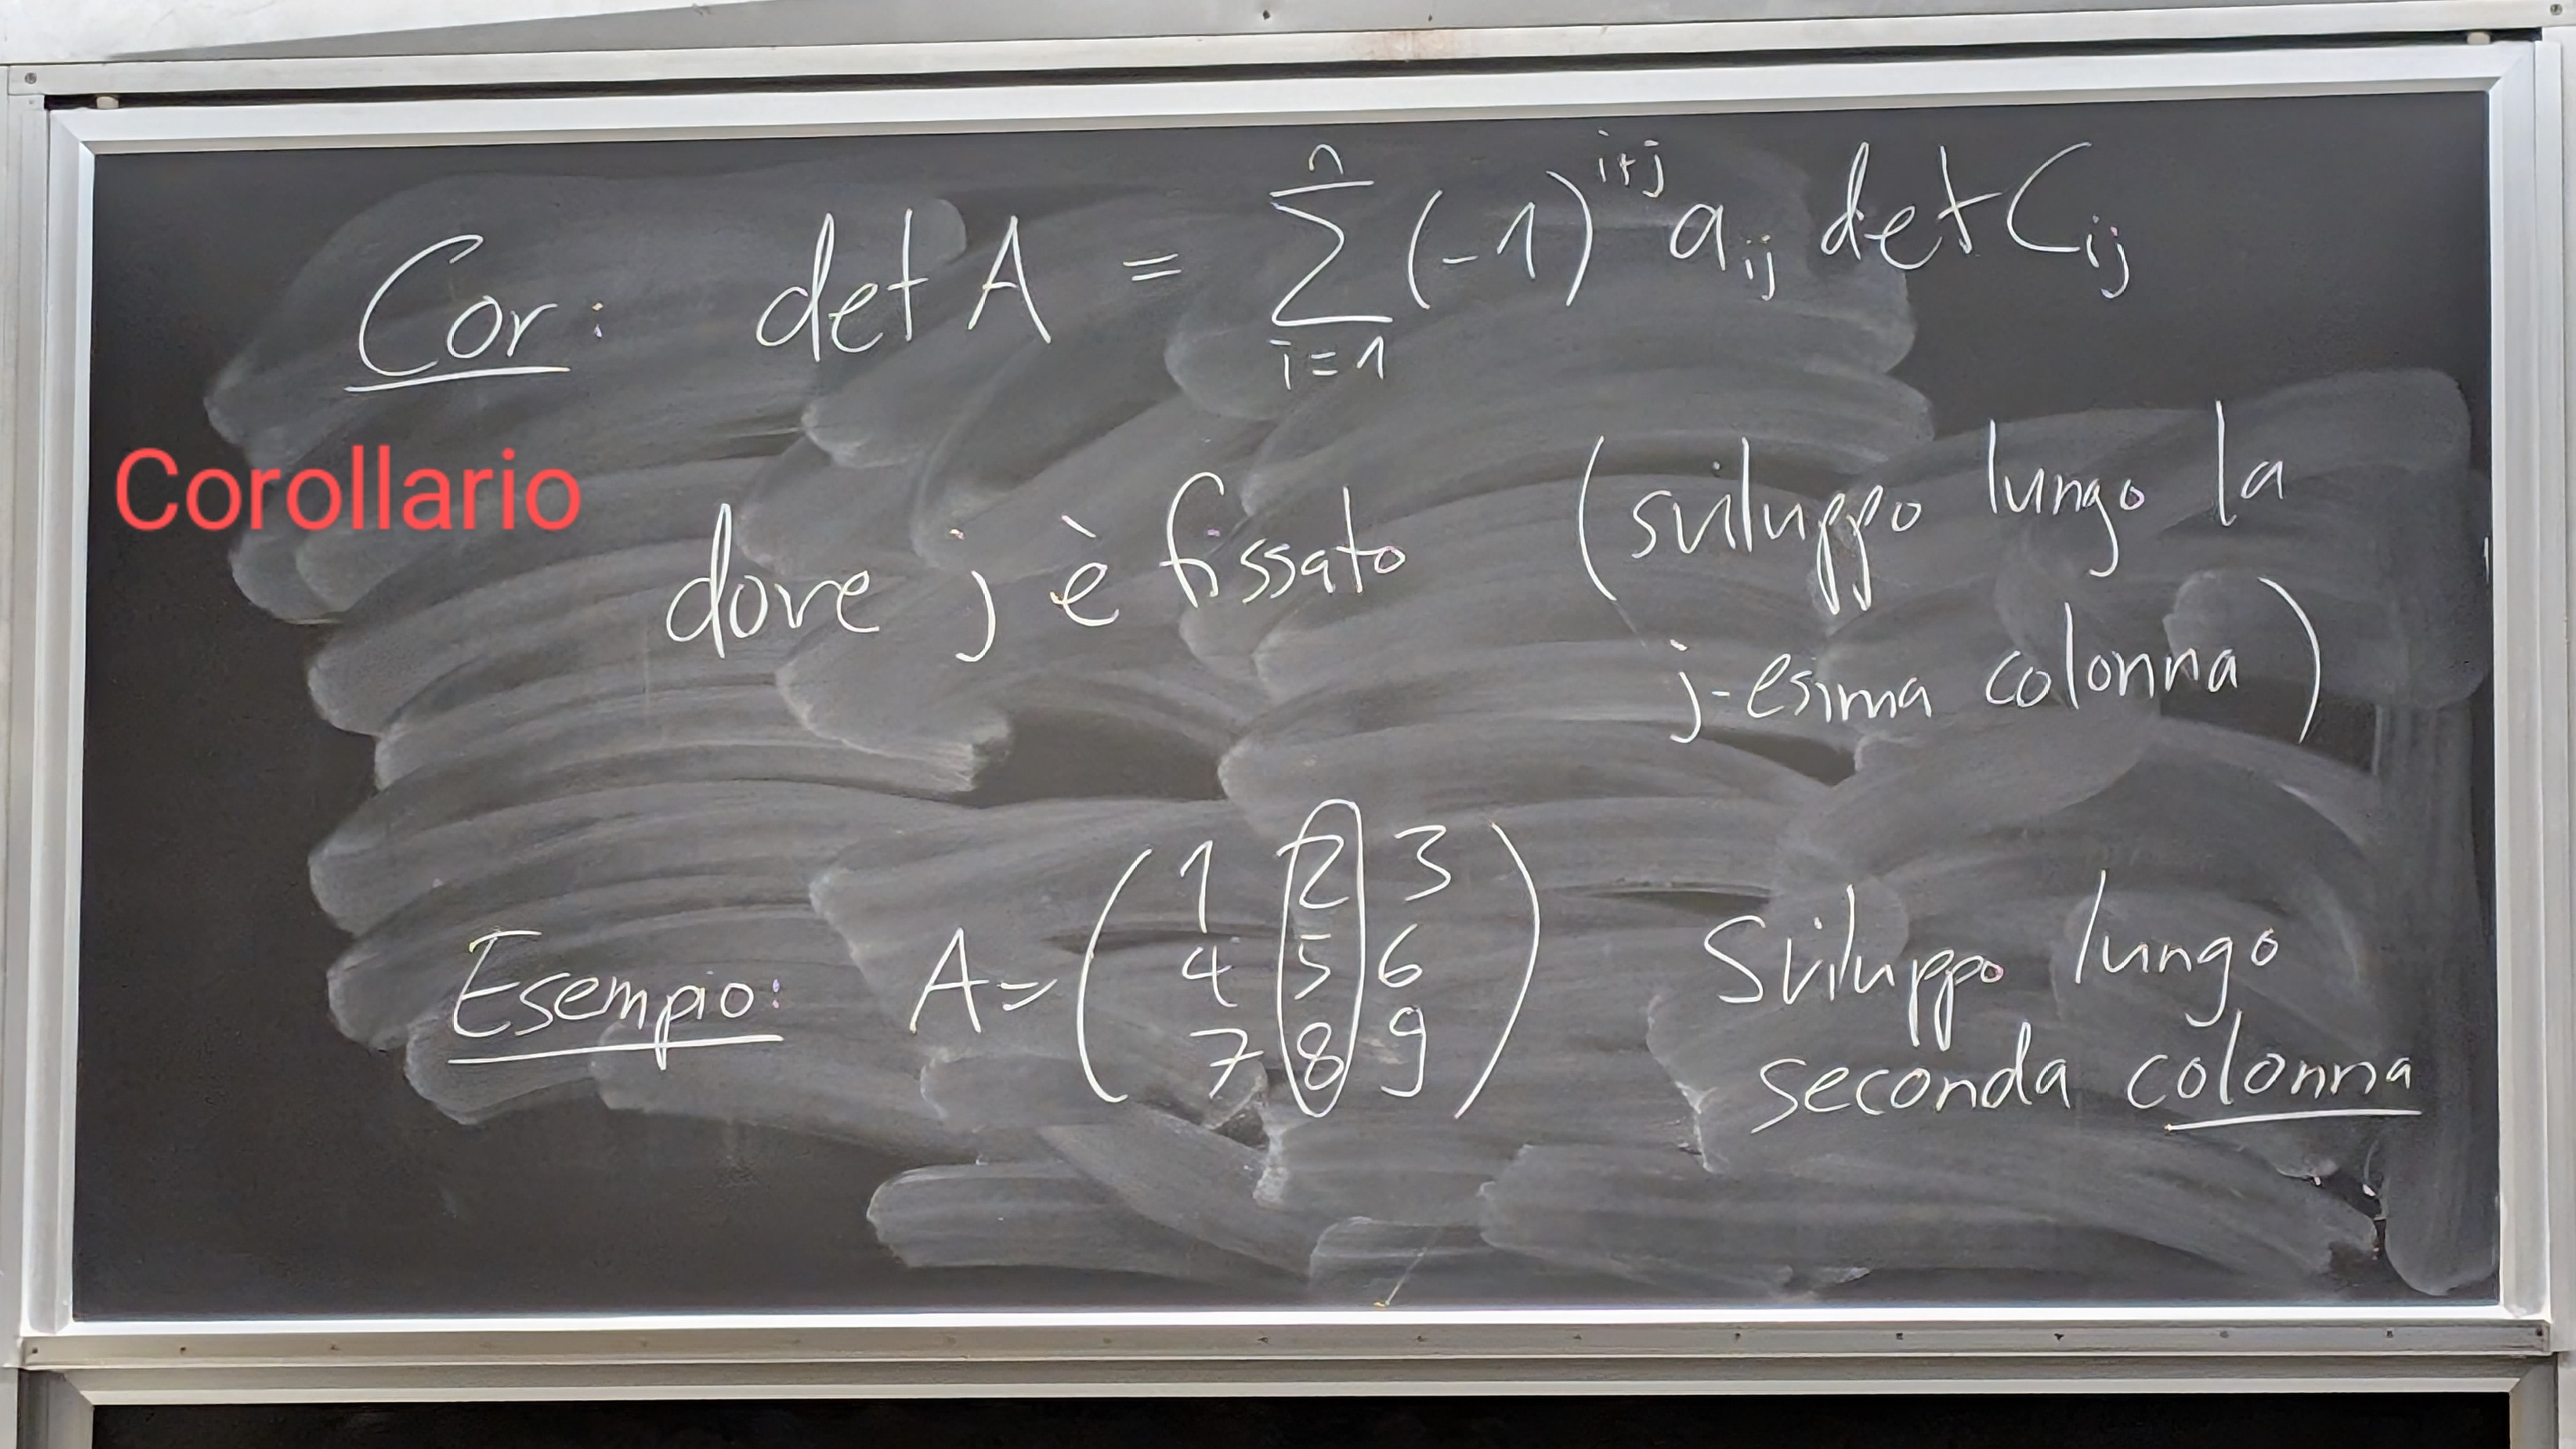 Cor: det A = ∑_{i=1}^{n} (-1)^{i+j} a_{ij} det C_{ij}
Corollario
dove j è fissato (sviluppo lungo la
j-esima colonna)
Esempio: A = ( 1 2 3
4 5 6
7 8 9 )
Sviluppo lungo
seconda colonna